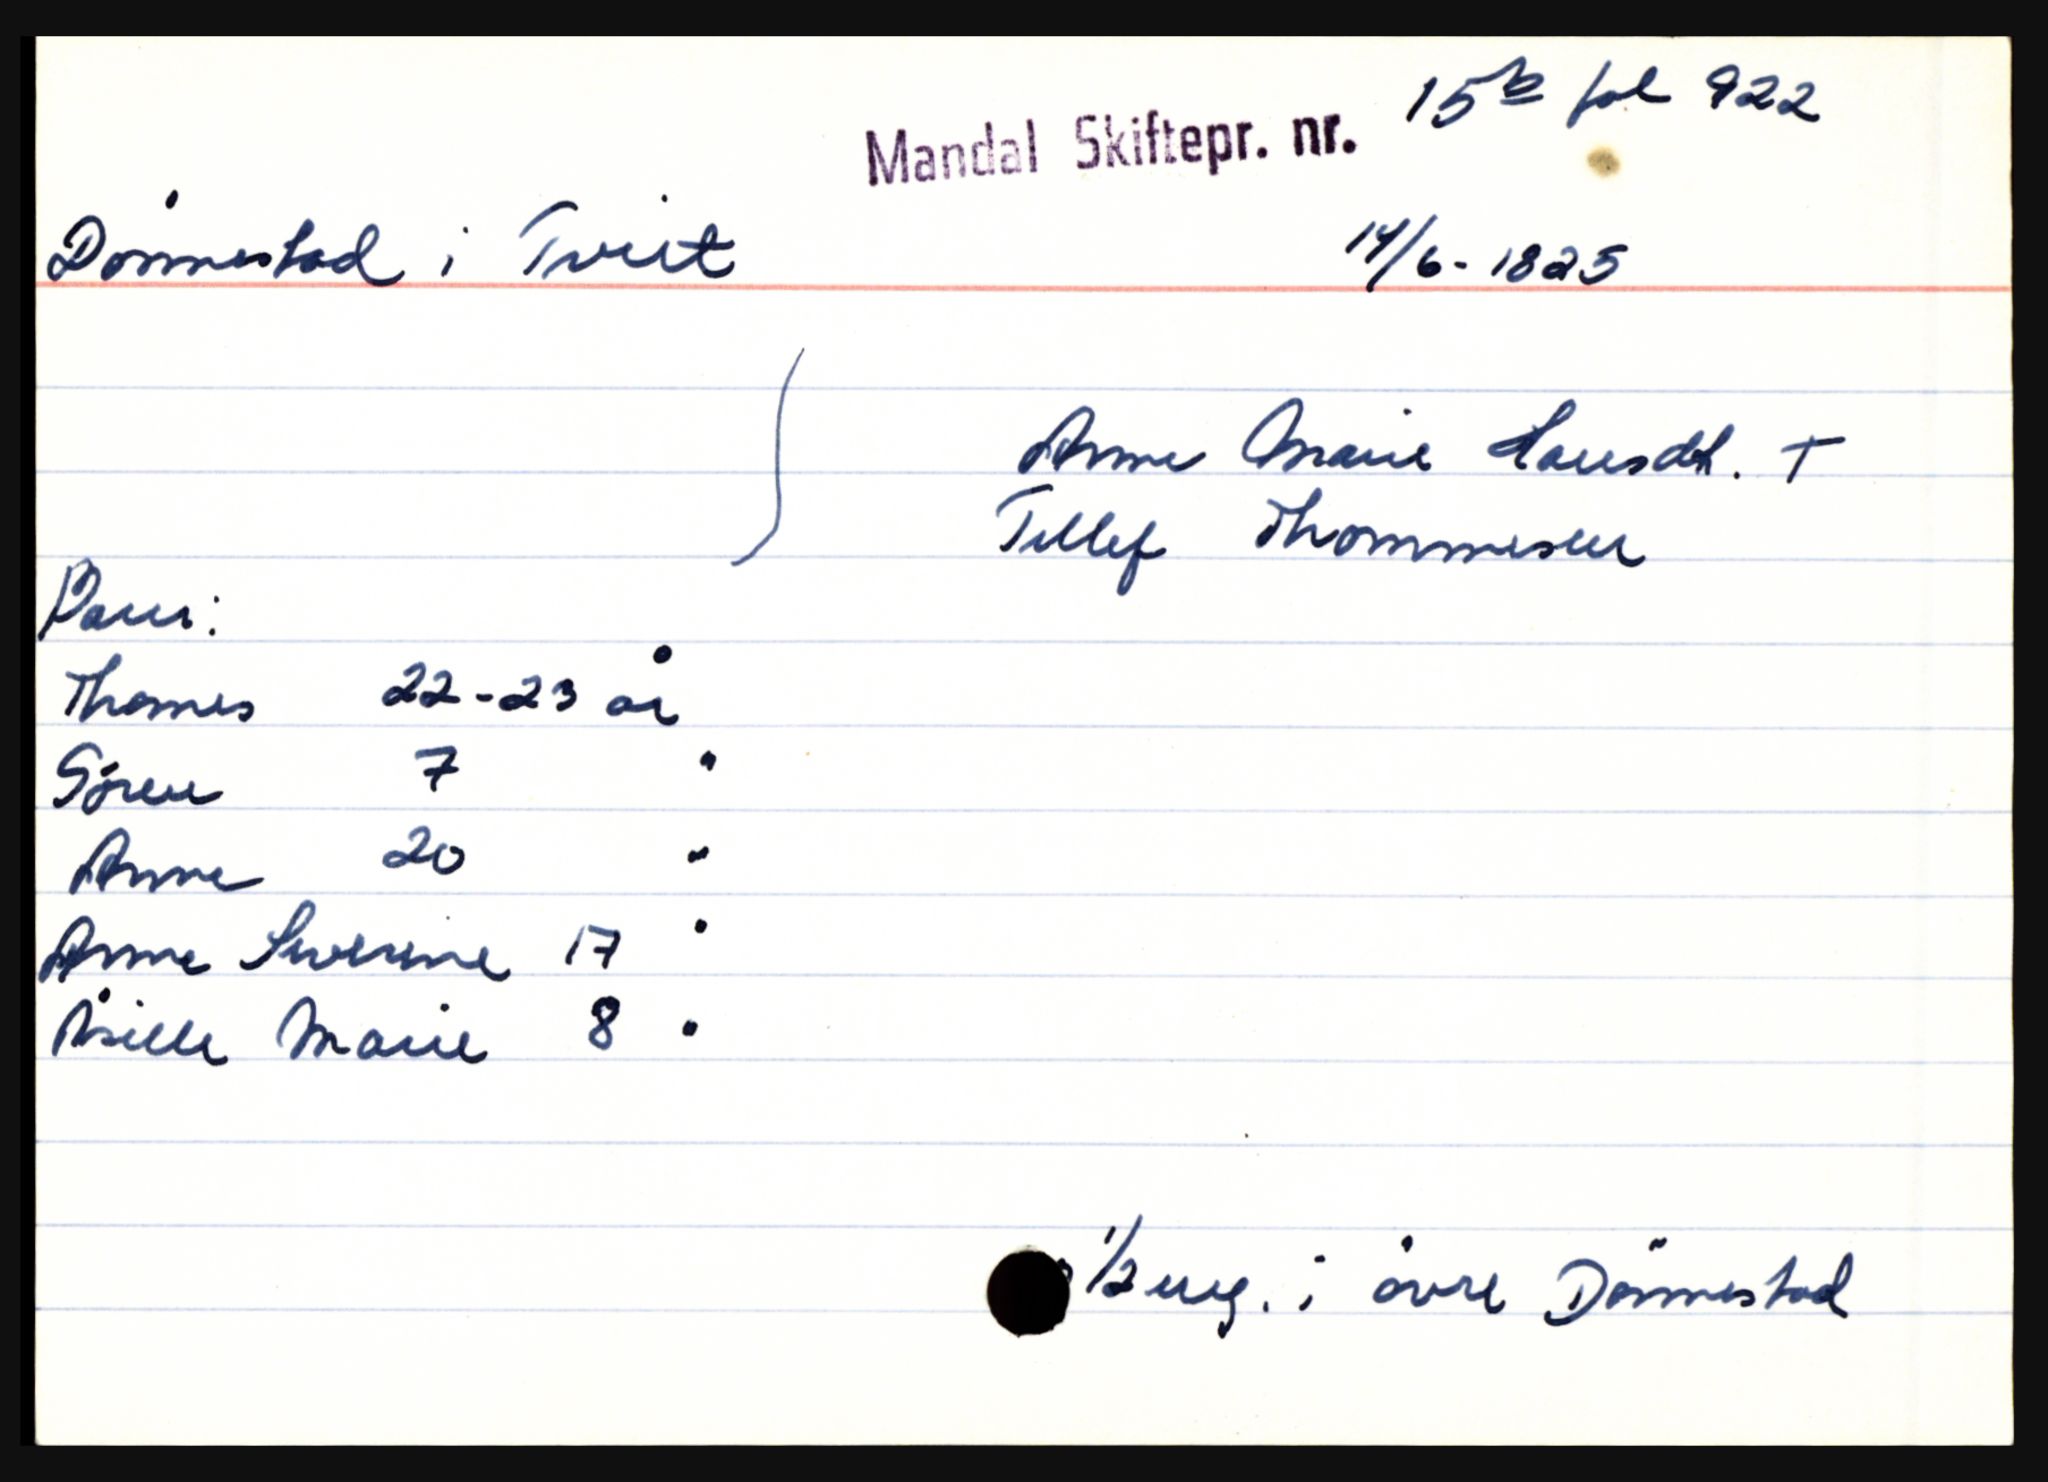 Mandal Skiftepr. nr. 15b fol 922
Dönnestad i Tveit 14/6-1825
Anne Marie Hansdt. †
Tellef Thommesen
Barn:
Thomes 22-23 år
Sören 7 "
Anne 20 "
Anne Severine 17 "
Åsille Marie 8 "
1/2 eng. i övre Dönnestad